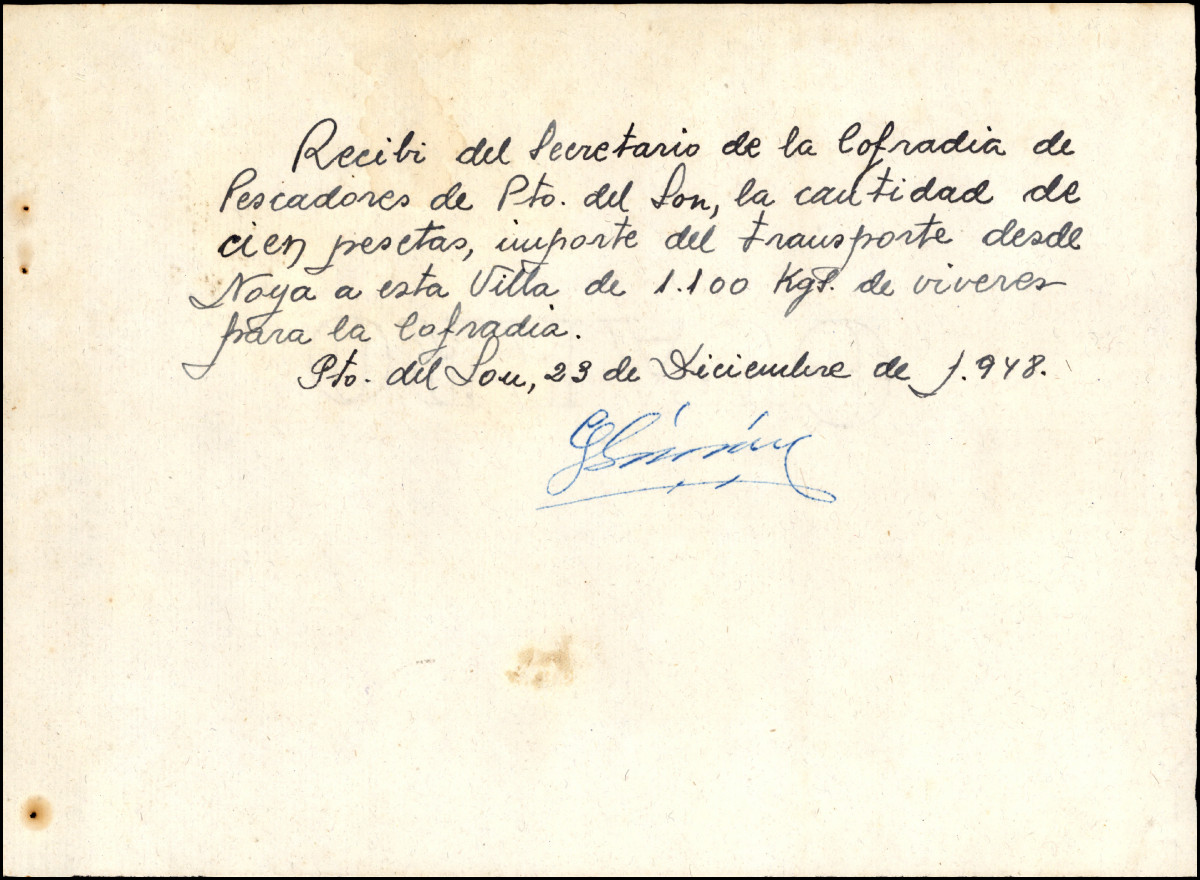 Recibi del Secretario de la Cofradia de
Pescadores de Pto. del Son, la cantidad de
cien pesetas, importe del transporte desde
Noya a esta Villa de 1.100 Kgs. de viveres
para la Cofradia.
Pto. del Son, 23 de Diciembre de 1.948.